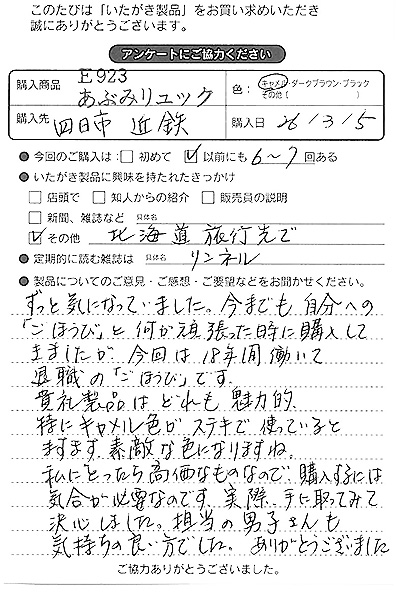 このたびは「いたがき製品」をお買い求めいただき
誠にありがとうございます。
アンケートにご協力ください
購入商品 E923 あぶみリュック
色：キャメル・ダークブラウン・ブラック
その他（ ）
購入先 四日市 近鉄 購入日 26/3/5
●今回のご購入は：□初めて ☑以前にも 6〜7 回ある
●いたがき製品に興味を持たれたきっかけ
□店頭で □知人からの紹介 □販売員の説明
□新聞、雑誌など 具体名
☑その他 具体名 北海道旅行先で
●定期的に読む雑誌は 具体名 リンネル
●製品についてのご意見・ご感想・ご要望などをお聞かせください。
ずっと気になっていました。今までも自分への
「ごほうび」と何か頑張った時に購入して
きましたが 今回は18年間働いて
退職の「ごほうび」です。
貴社製品はどれも魅力的
特にキャメル色がステキで使っていると
ますます素敵な色になりますね。
私にとったら高価なものなので購入するには
気合が必要なのです。実際、手に取ってみて
決心しました。担当の男子さんも
気持ちの良い方でした。ありがとうございました
ご協力ありがとうございました。